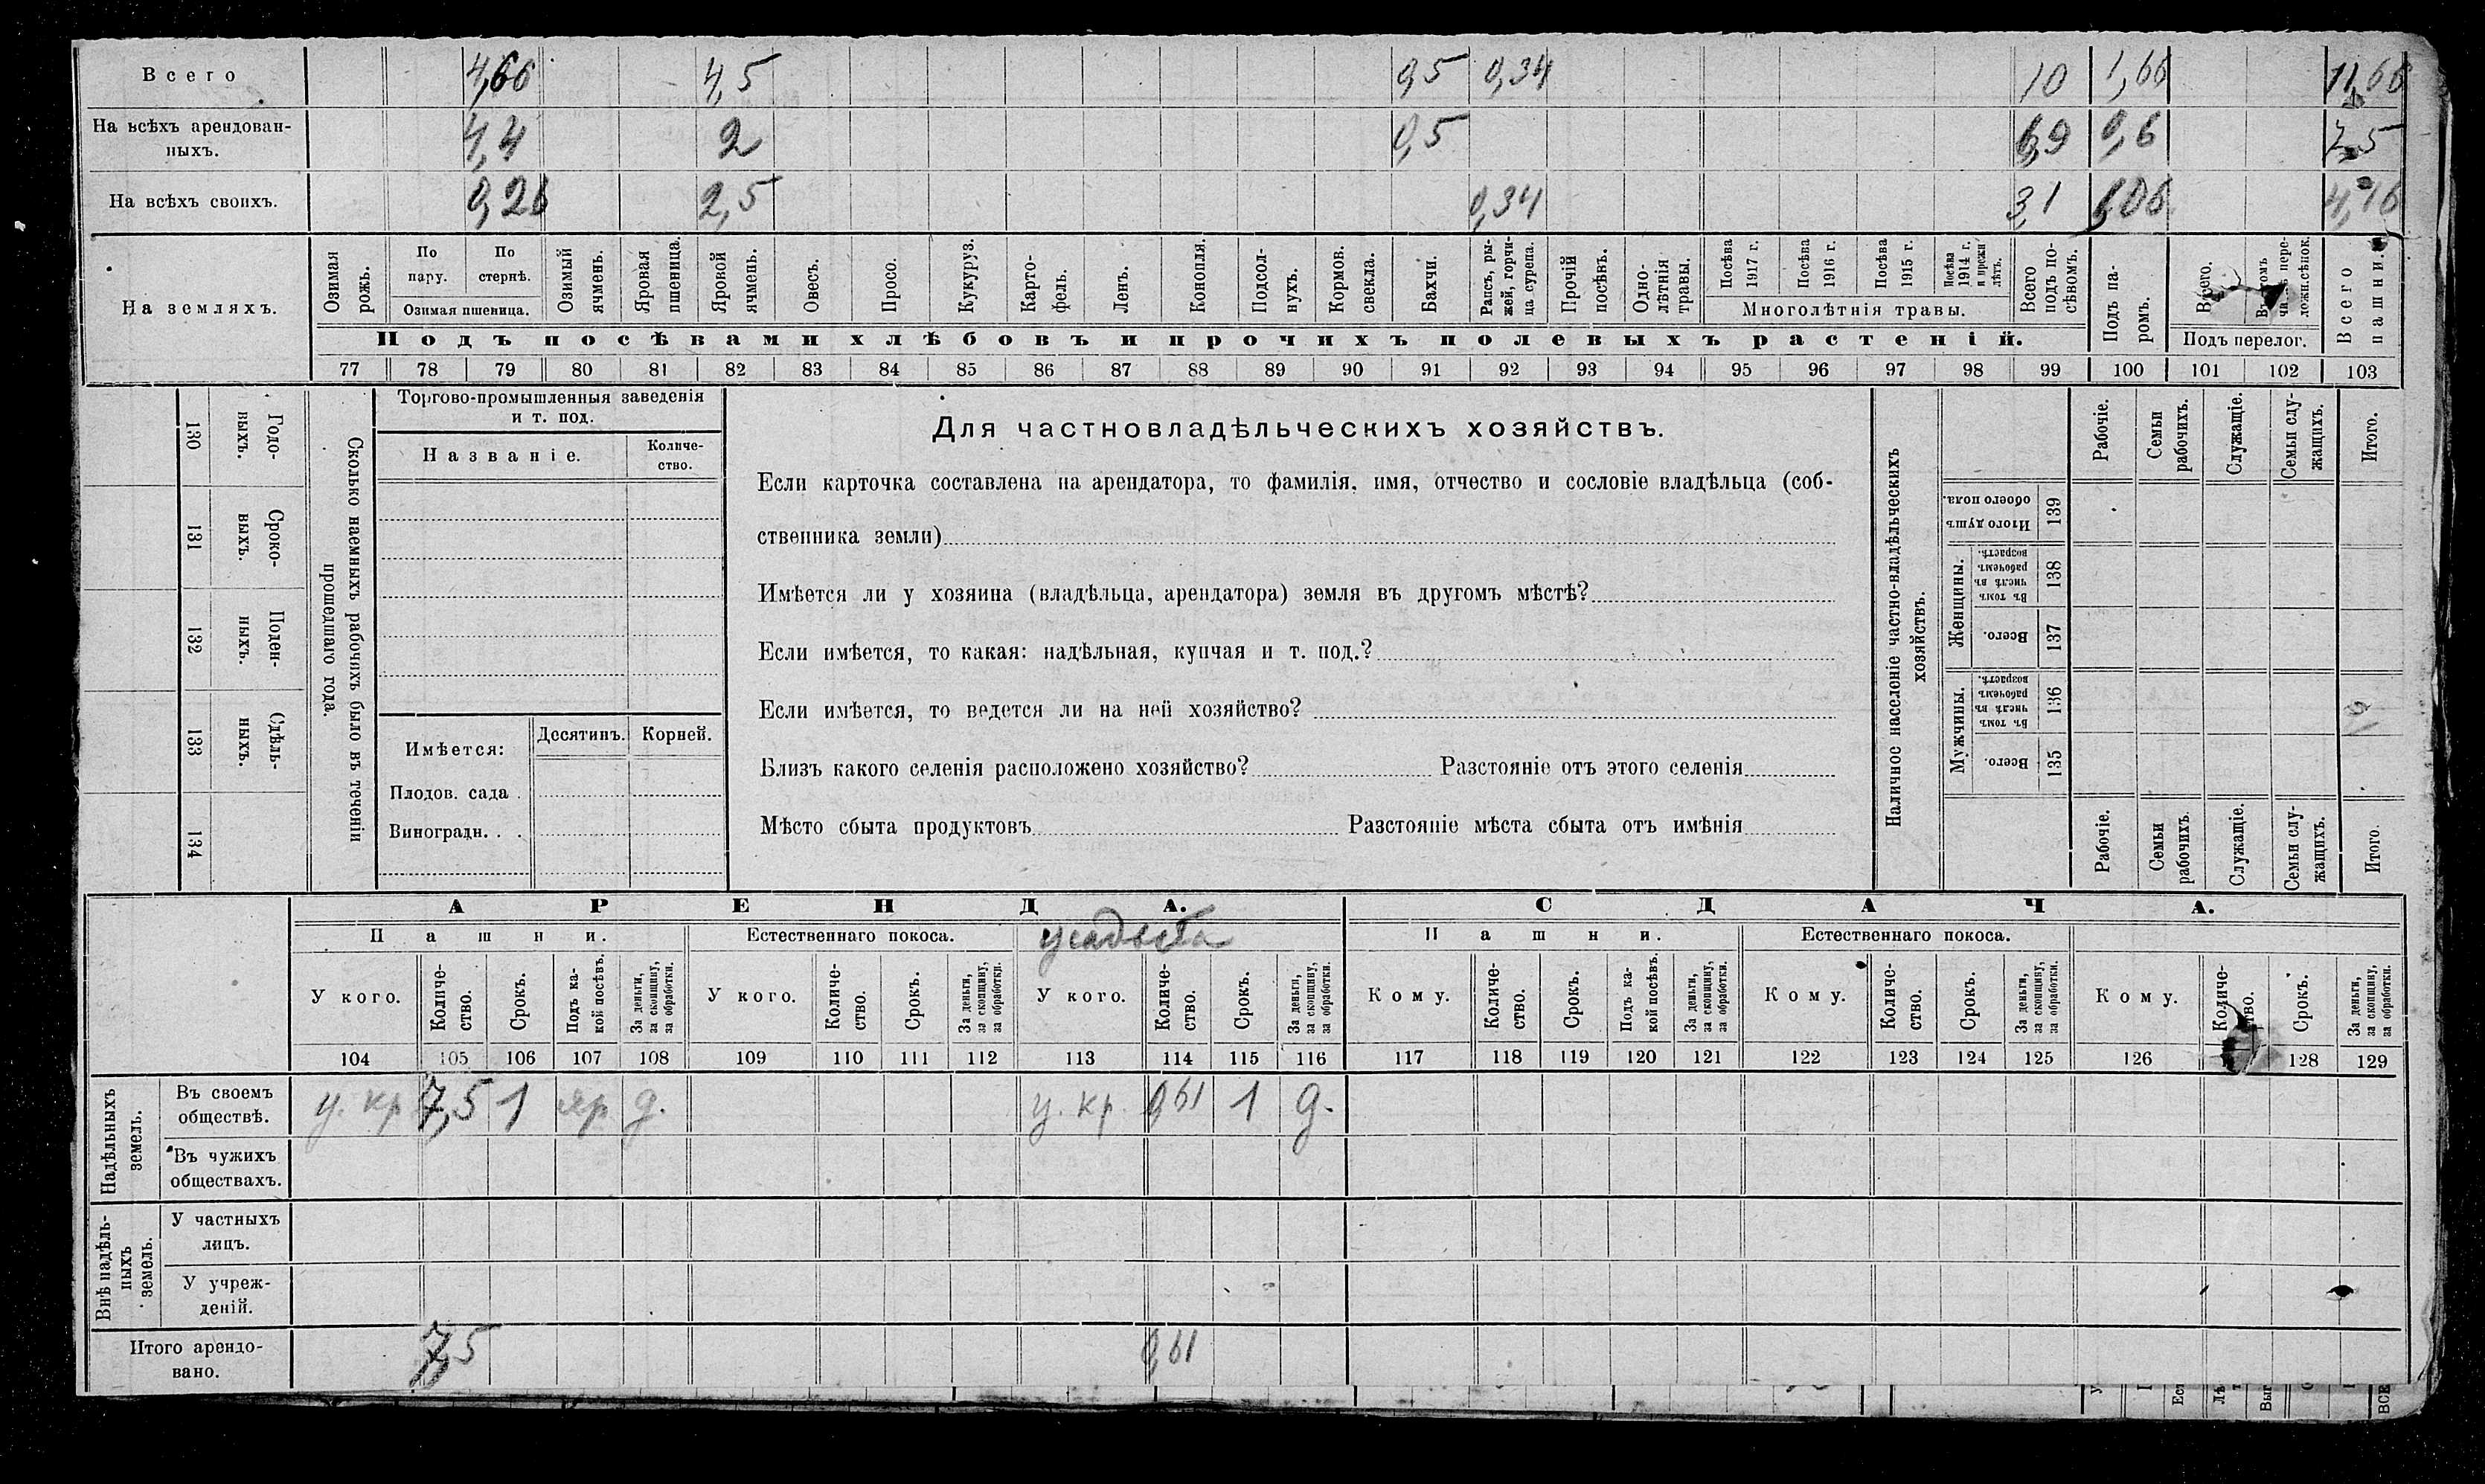 Всего 4,66 4,5 0,5 0,34 10 1,66 11,66
На всѣхъ арендован-
ныхъ. 4,4 2 0,5 6,9 0,6 7,5
На всѣхъ своихъ. 0,26 2,5 0,34 3,1 1,06 4,16
На земляхъ.
Озимая рожь.
По пару.
По стернѣ.
Озимая пшеница.
Озимый ячмень.
Яровая пшеница.
Яровой ячмень.
Овесъ.
Просо.
Кукуруз.
Карто-
фель.
Ленъ.
Конопля.
Подсол-
нухъ.
Кормов. свекла.
Бахчи.
Рапсъ, ры-
жей, горчи-
ца сурепа.
Прочій посѣвъ.
Одно-
лѣтнія травы.
Посѣва 1917 г.
Посѣва 1916 г.
Посѣва 1915 г.
Посѣва 1914 г. и прежн лѣтъ.
Многолѣтнія травы.
Всего подъ по-
сѣвомъ.
Подъ па-
ромъ.
Всего.
Подъ перелог.
Всего пашни.
Подъ посѣвами хлѣбовъ и прочихъ полевыхъ растеній.
77 78 79 80 81 82 83 84 85 86 87 88 89 90 91 92 93 94 95 96 97 98 99 100 101 102 103
130 Годо-
выхъ.
131 Сроко-
выхъ.
132 Поден-
ныхъ.
133 Сдѣль-
ныхъ.
134
Сколько наемныхъ рабочихъ было въ теченіи
прошедшаго года.
Торгово-промышленныя заведенія
и т. под.
Названіе.
Количе-
ство.
Имѣется:
Десятинъ. Корней.
Плодов. сада .
Виноградн. . .
Для частновладѣльческихъ хозяйствъ.
Если карточка составлена на арендатора, то фамилія, имя, отчество и сословіе владѣльца (соб-
ственника земли)
Имѣется ли у хозяина (владѣльца, арендатора) земля въ другомъ мѣстѣ?
Если имѣется, то какая: надѣльная, купчая и т. под.?
Если имѣется, то ведется ли на ней хозяйство?
Близъ какого селенія расположено хозяйство? Разстояніе отъ этого селенія
Мѣсто сбыта продуктовъ Разстояніе мѣста сбыта отъ имѣнія
Наличное населеніе частно-владѣльческихъ
хозяйствъ.
Рабочіе.
Семьи рабочихъ.
Служащіе.
Семьи слу-
жащихъ.
Итого.
Итого душъ обоего пола. 139
Женщины.
Въ томъ числѣ въ рабочемъ возрастѣ. 138
Всего. 137
Мужчины.
Въ томъ числѣ въ рабочемъ возрастѣ. 136
Всего. 135
Рабочіе.
Семьи рабочихъ.
Служащіе.
Семьи слу-
жащихъ.
Итого.
АРЕНДА. СДАЧА.
Пашни. Естественнаго покоса. усадьба Пашни. Естественнаго покоса.
У кого.
Количе-
ство.
Срокъ.
Подъ ка-
кой посѣвъ.
За деньги,
за скопщину,
за обработки.
У кого.
Количе-
ство.
Срокъ.
За деньги,
за скопщину,
за обработки.
У кого.
Количе-
ство.
Срокъ.
За деньги,
за скопщину,
за обработки.
Кому.
Количе-
ство.
Срокъ.
Подъ ка-
кой посѣвъ.
За деньги,
за скопщину,
за обработки.
Кому.
Количе-
ство.
Срокъ.
За деньги,
за скопщину,
за обработки.
Кому.
Количе-
ство.
Срокъ.
За деньги,
за скопщину,
за обработки.
104 105 106 107 108 109 110 111 112 113 114 115 116 117 118 119 120 121 122 123 124 125 126 128 129
Надѣльныхъ
земель.
Въ своемъ
обществѣ. у. кр 7,5 1 яр д. у. кр. 0,61 1 д.
Въ чужихъ
обществахъ.
Внѣ надѣль-
ныхъ
земель.
У частныхъ
лицъ.
У учреж-
деній.
Итого арендо-
вано. 7,5 0,61